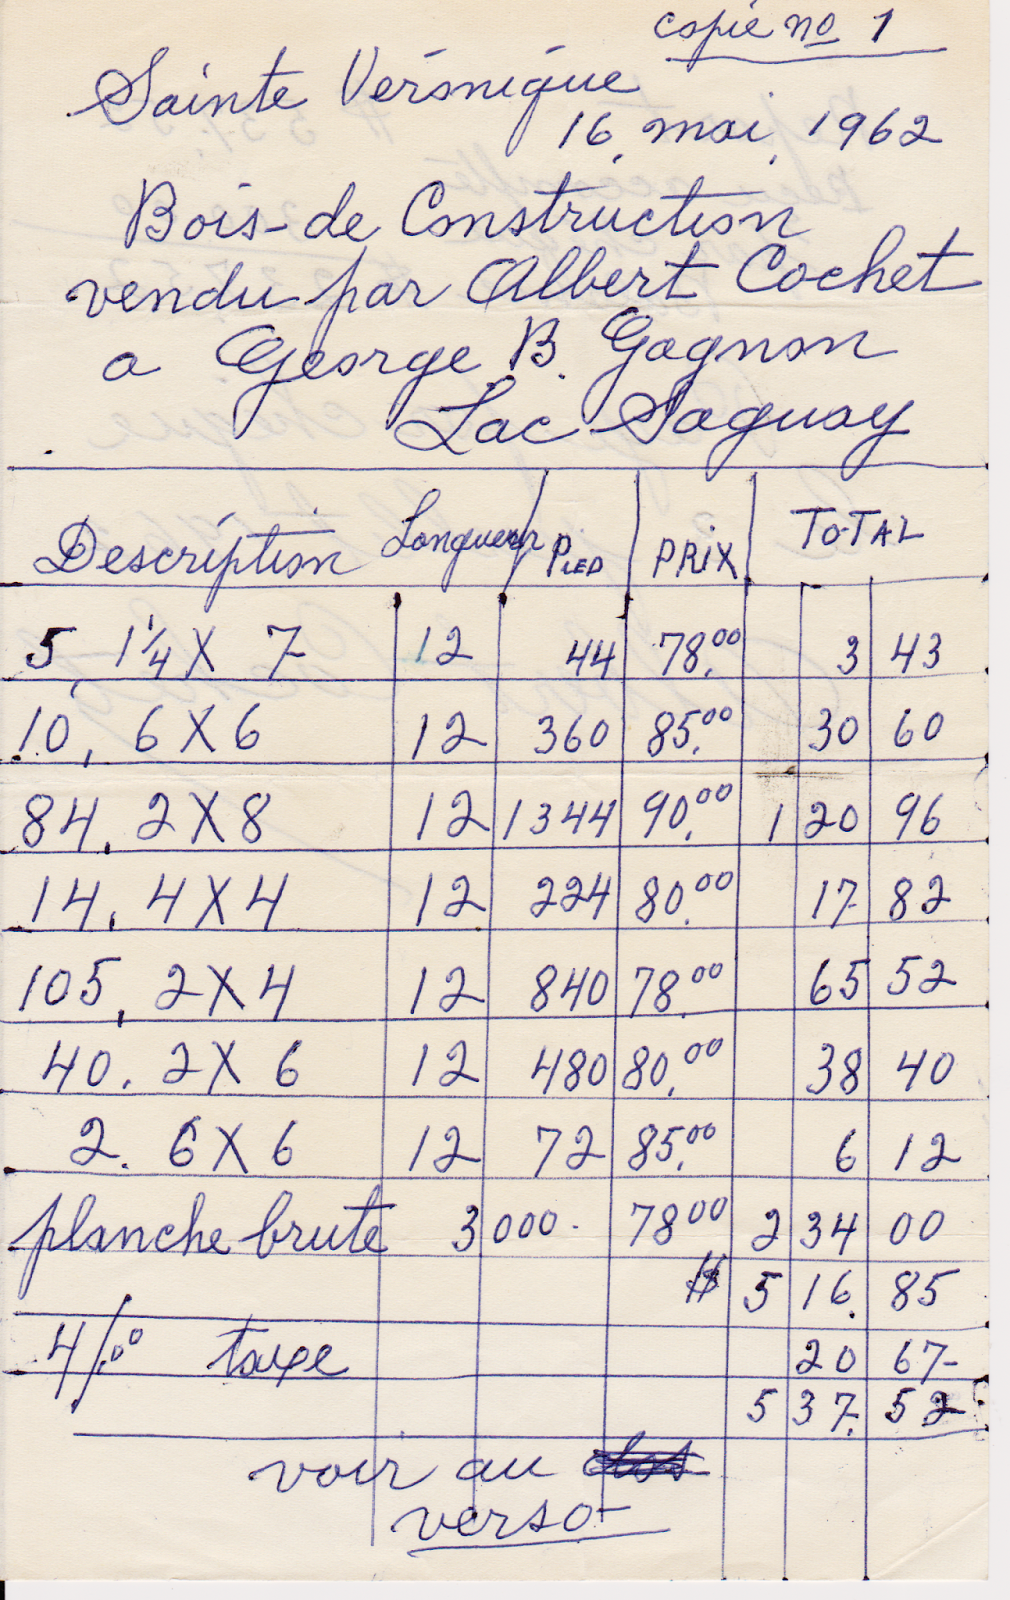 copie no 1
Sainte Véronique
16, mai, 1962
Bois de Construction
vendu par Albert Cochet
a George B. Gagnon
Lac Saguay
Description Longueur PIED PRIX TOTAL
5, 1 1/4 X 7 12 44 78.00 3 43
10, 6 X 6 12 360 85.00 30 60
84, 2 X 8 12 1344 90.00 1 20 96
14, 4 X 4 12 224 80.00 17 82
105, 2 X 4 12 840 78.00 65 52
40. 2 X 6 12 480 80.00 38 40
2. 6 X 6 12 72 85.00 6 12
planche brute 3000. 7800 2 34 00
$ 5 16. 85
4% taxe 20 67
5 37. 52
voir au
verso